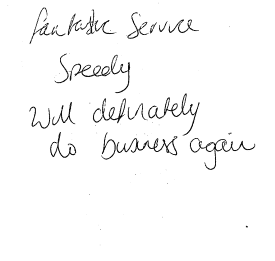 fantastic service
Speedy
Will definately
do business again